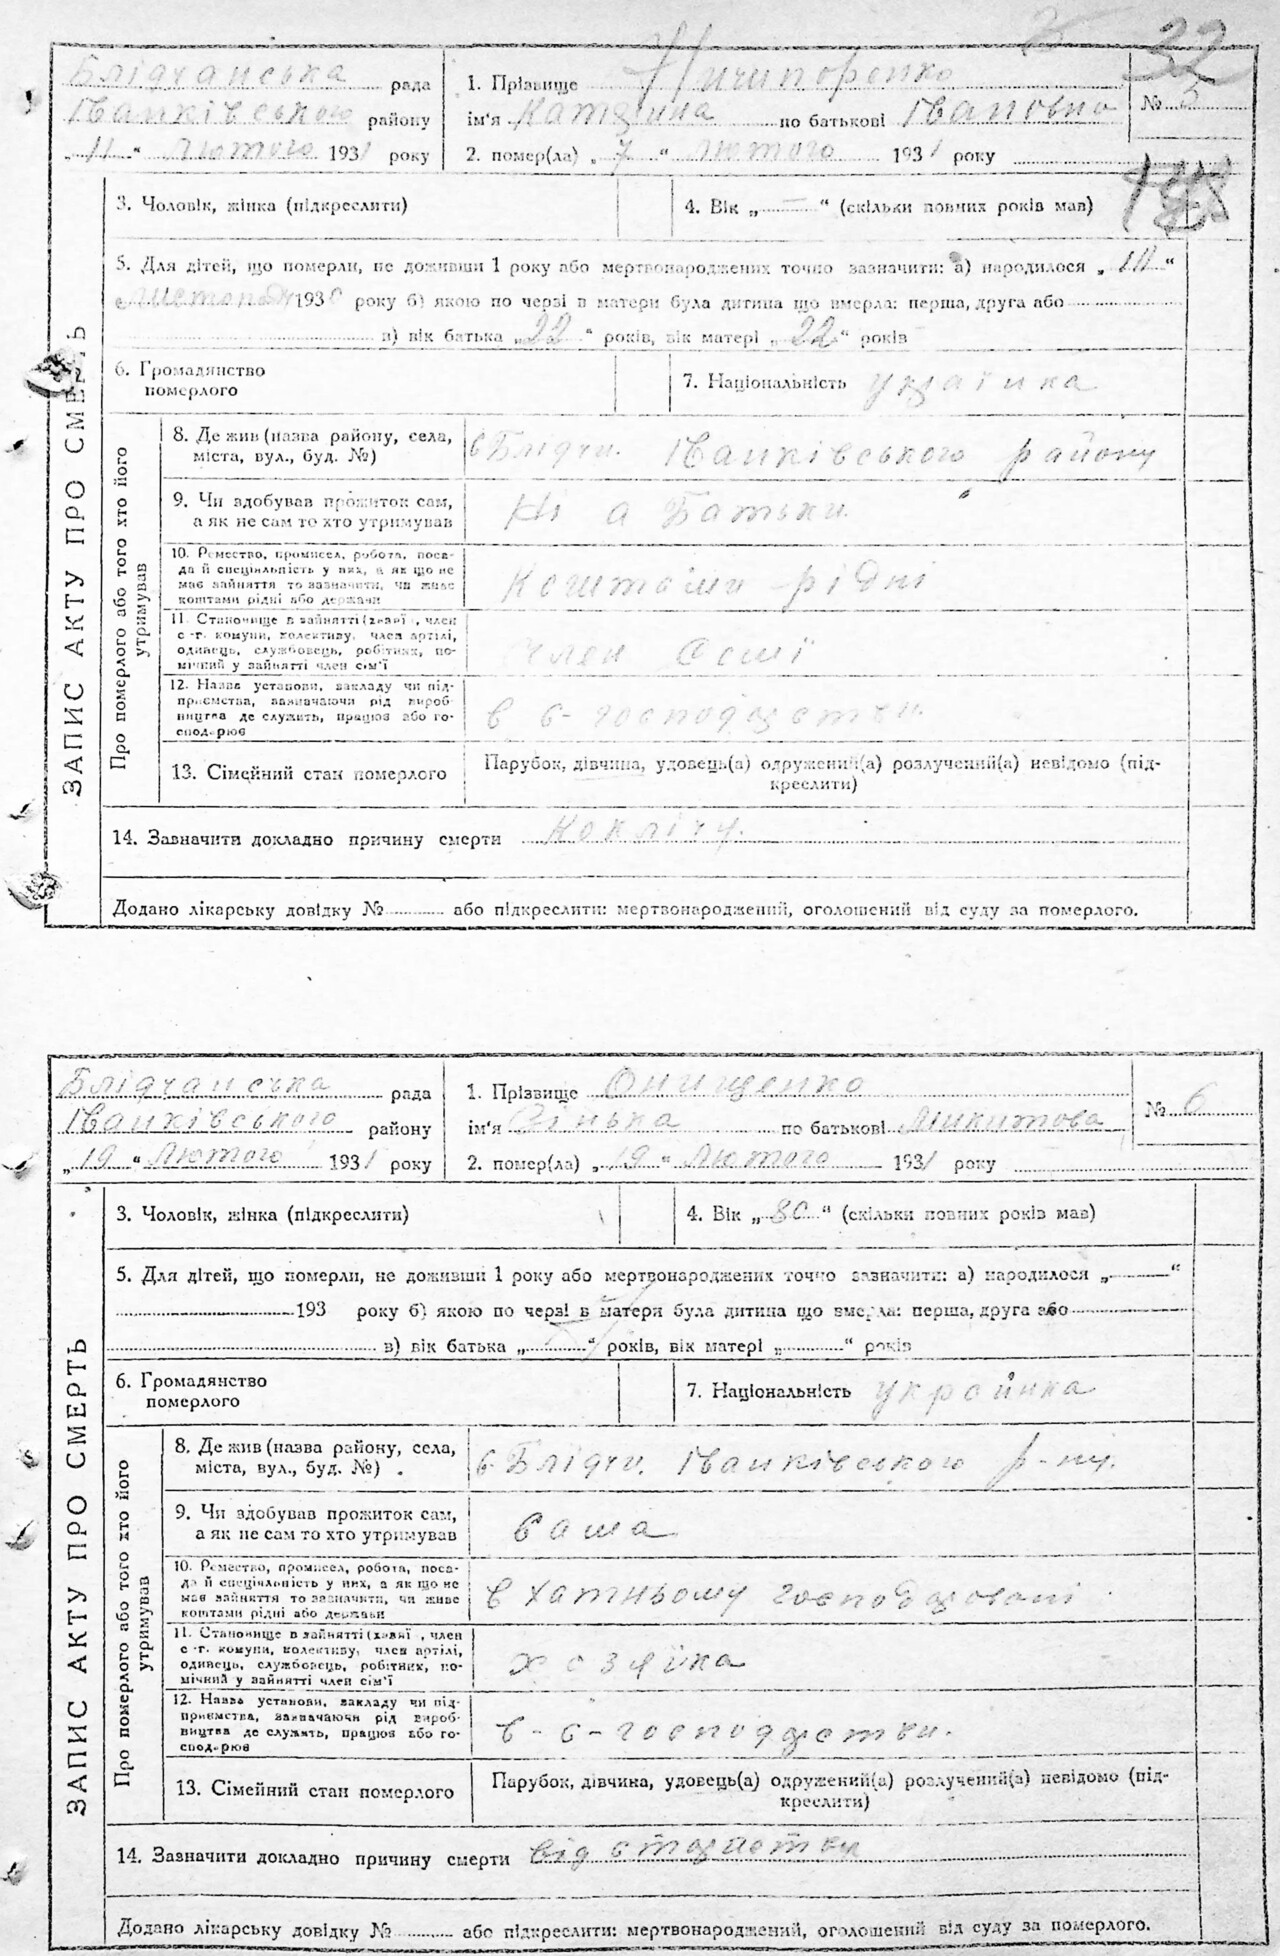 32
Блідчанська рада
Іванківського району
„ 11 “ Лютого 1931 року
1. Прізвище Ничипоренко
ім'я Катерина по батькові Івановна
2. помер(ла) „ 7 “ лютого 1931 року
№ 5
3. Чоловік, жінка (підкреслити)
4. Вік „ — “ (скільки повних років мав)
5. Для дітей, що померли, не доживши 1 року або мертвонароджених точно зазначити: а) народилося „ “
листопада 1930 року б) якою по черзі в матери була дитина що вмерла: перша, друга або
в) вік батька „ 22 “ років, вік матері „ 22 “ років
6. Громадянство
померлого
7. Національність українка
ЗАПИС АКТУ ПРО СМЕРТЬ
Про померлого або того хто його
утримував
8. Де жив (назва району, села,
міста, вул., буд. №)
с Блідчи. Іванківського району
9. Чи здобував прожиток сам,
а як не сам то хто утримував
Ні а Батьки
10. Ремество, промисел, робота, поса-
да й спеціяльність у них, а як що не
має зайняття то зазначити, чи живе
коштами рідні або держави
Коштами рідні
11. Становище в зайнятті (хазяї, член
с.-г. комуни, колективу, член артілі,
одинець, службовець, робітник, по-
мічний у зайнятті член сім'ї
Член сем'ї
12. Назва установи, закладу чи під-
приємства, зазначаючи рід вироб-
ництва де служить, працює або го-
сподарює
в с-господарстви.
13. Сімейний стан померлого
Парубок, дівчина, удовець(а) одружений(а) розлучений(а) невідомо (під-
креслити)
14. Зазначити докладно причину смерти Коклічу.
Додано лікарську довідку № або підкреслити: мертвонароджений, оголошений від суду за померлого.
Блідчанська рада
Іванківського району
„ 19 “ Лютого 1931 року
1. Прізвище Онищенко
ім'я Зінька по батькові Микитова
2. помер(ла) „ 19 “ Лютого 1931 року
№ 6
3. Чоловік, жінка (підкреслити)
4. Вік „ 80 “ (скільки повних років мав)
5. Для дітей, що померли, не доживши 1 року або мертвонароджених точно зазначити: а) народилося „ “
193 року б) якою по черзі в матери була дитина що вмерла: перша, друга або
в) вік батька „ “ років, вік матері „ “ років
6. Громадянство
померлого
7. Національність українка
ЗАПИС АКТУ ПРО СМЕРТЬ
Про померлого або того хто його
утримував
8. Де жив (назва району, села,
міста, вул., буд. №)
с. Блідчи. Іванківського р-ну.
9. Чи здобував прожиток сам,
а як не сам то хто утримував
Сама
10. Ремество, промисел, робота, поса-
да й спеціяльність у них, а як що не
має зайняття то зазначити, чи живе
коштами рідні або держави
в хатньому господарстві
11. Становище в зайнятті (хазяї, член
с.-г. комуни, колективу, член артілі,
одинець, службовець, робітник, по-
мічний у зайнятті член сім'ї
хозяйка
12. Назва установи, закладу чи під-
приємства, зазначаючи рід вироб-
ництва де служить, працює або го-
сподарює
в - с - господарстви.
13. Сімейний стан померлого
Парубок, дівчина, удовець(а) одружений(а) розлучений(а) невідомо (під-
креслити)
14. Зазначити докладно причину смерти від старости
Додано лікарську довідку № або підкреслити: мертвонароджений, оголошений від суду за померлого.